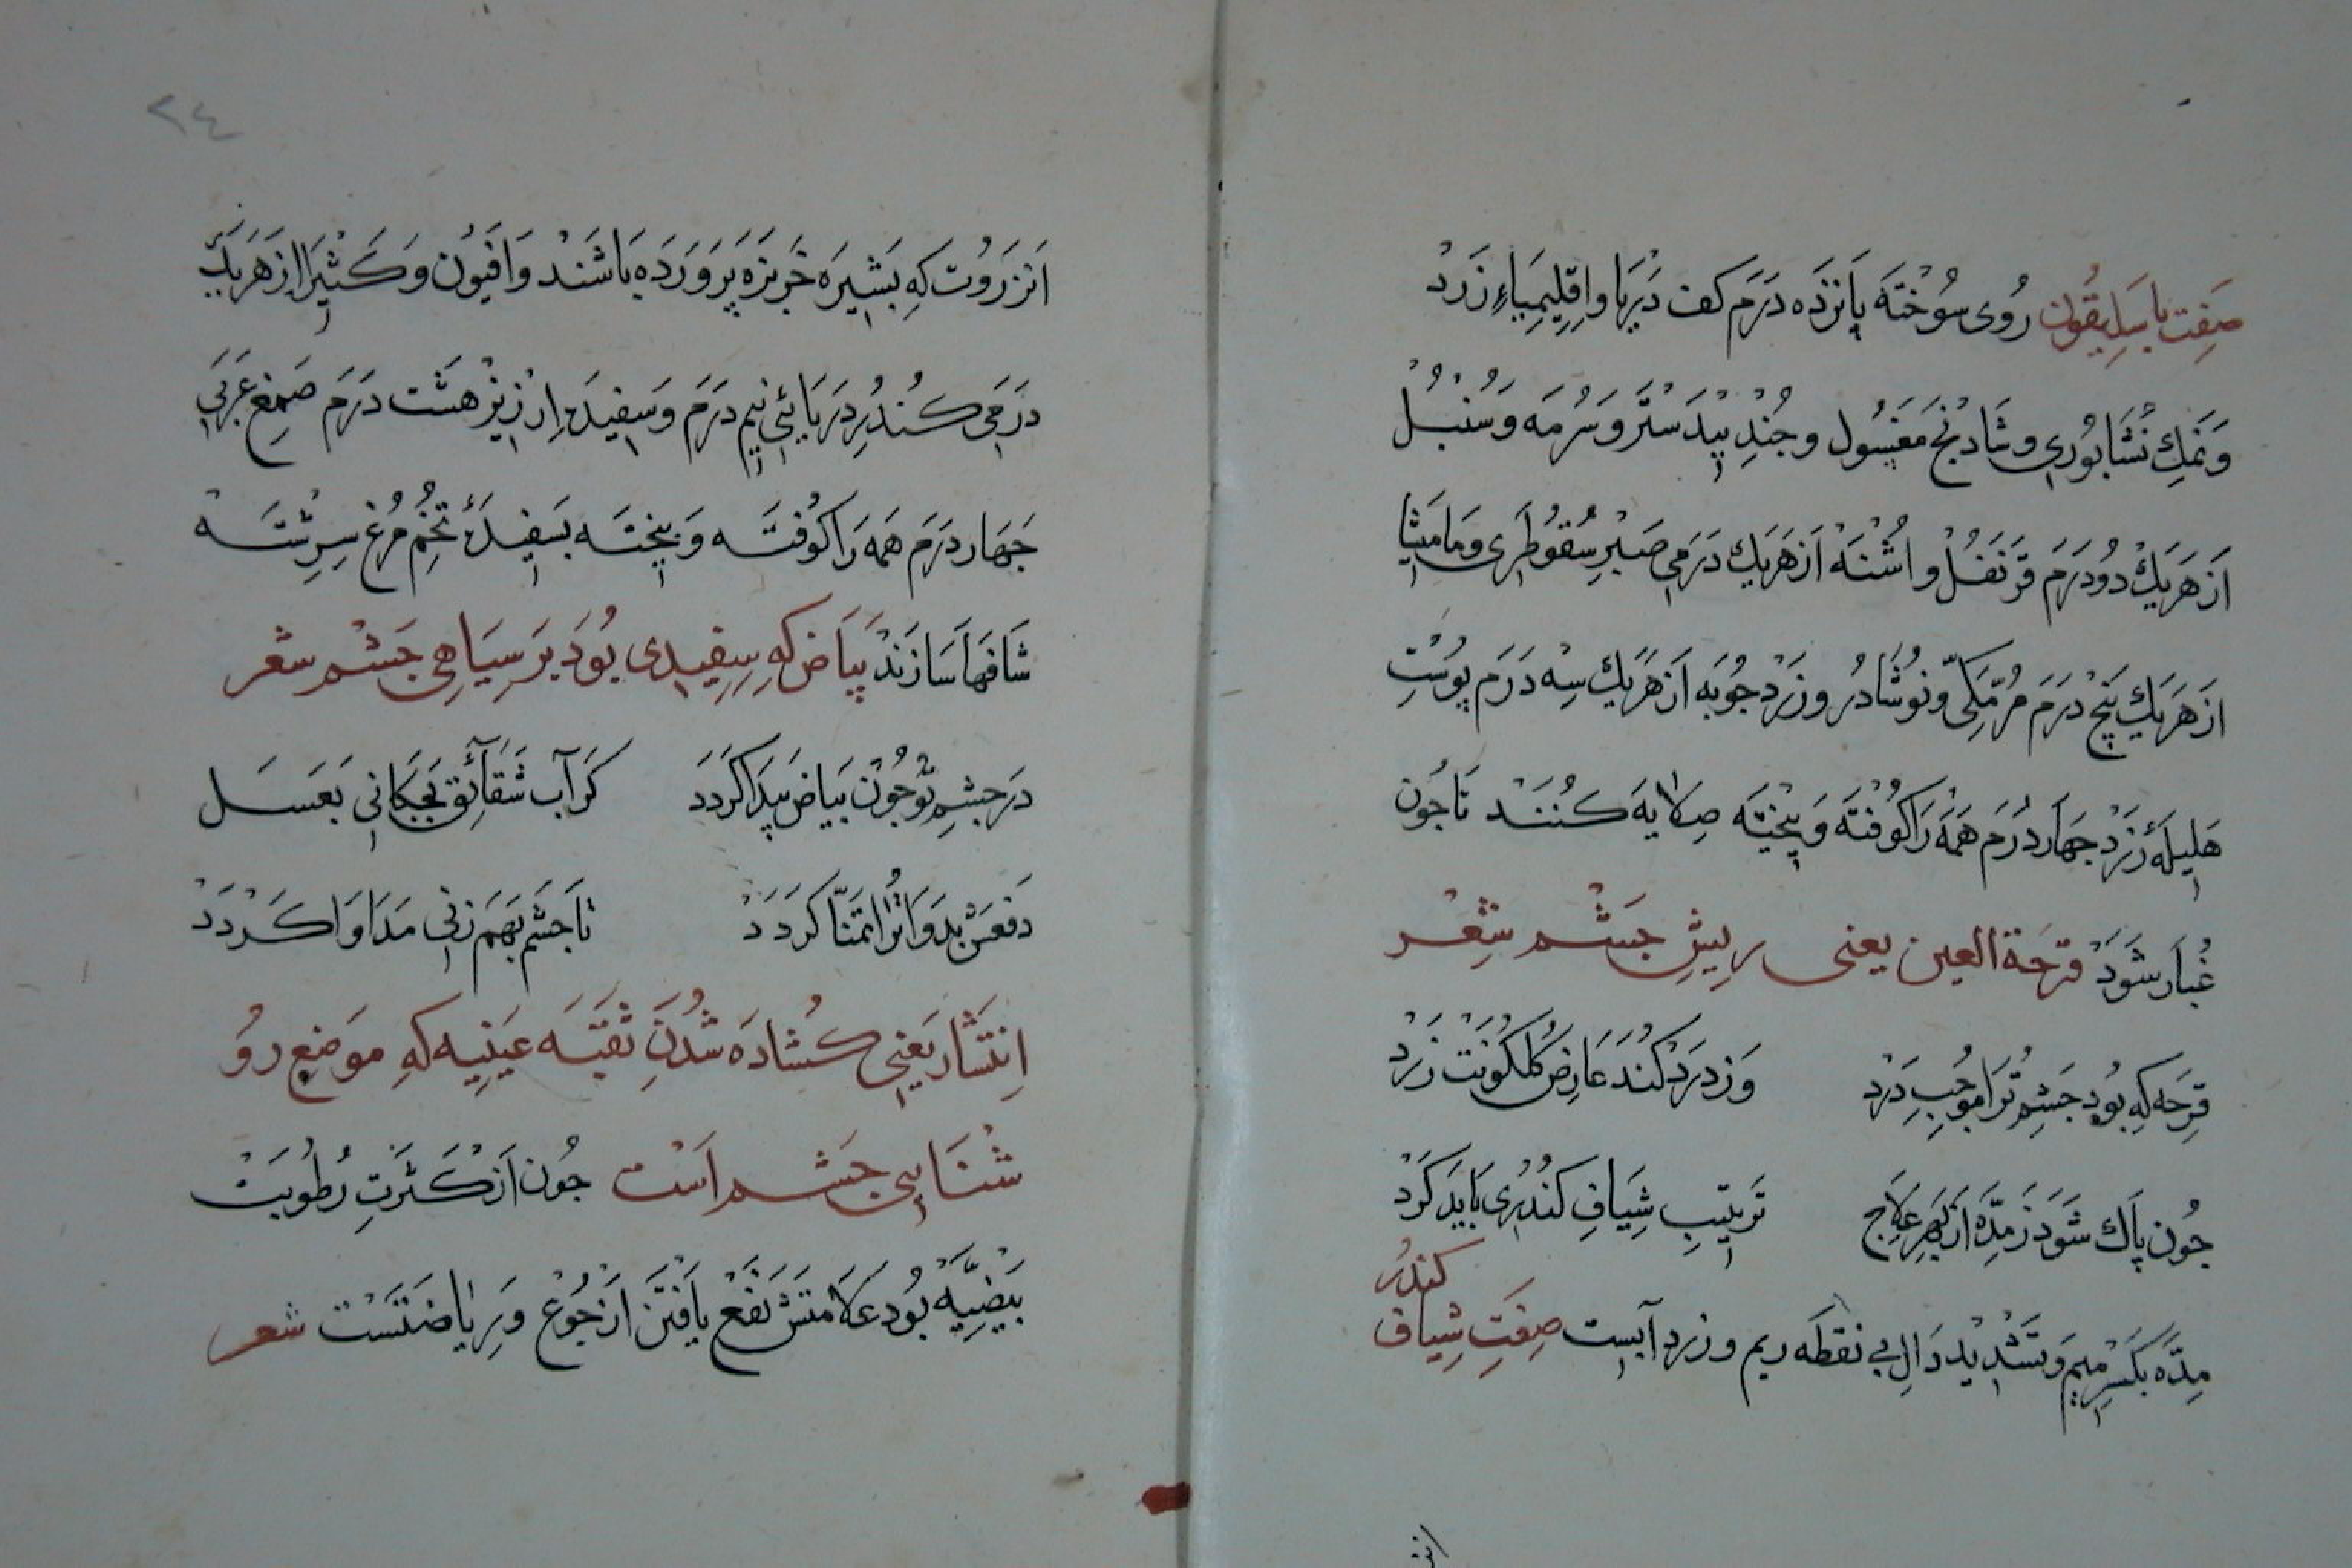 صِفِت باسَلِیقُون رُوی سُوخْتَه پانزدَه دَرَم کف دَریَا و اِقلِیمِیَاءِ زَردْ
وَنَمَكِ نُشَابُوری وشَادنَجْ مَغسُول وجُندِ بِیدَسْتَر وَسُرمَه وَسُنبُل
اَز هَریَك دُودَرَم قَرَنفُل و اشْنَه اَزهَریَك دَرَمی صَبْرِ سُقوُطرَی ومَامیثَا
از هَریَك پَنج دَرَم مُرّمَکّی ونوُشَادُر وزَردْجُوبَه اَزهَریَك سِه دَرَم پوُستِ
هَلِیلَۀ زَردْ جهَار دَرَم هَمَه رَا کُوفتَه وَبیختَه صِلایَه کُنَند تَا جُون
غُبَار شَوَد قرحَة العین یعنی ریشِ جَشْم شِعْر
قرحَه کِه بُود جَشمِ تُرَا موُجِبِ دَرْد وَز دَرد کُند عَارِضِ گلگونَت زَرد
جُون پَاك شَوَد زمِدَّه از بَهرِ عِلَاج تَرتیبِ شِیَافِ کُندُری بَایَد کَردْ
مِدَّه بکَسرِ مِیم وَتشدِید دَالِ بی نقطَه ریم و زرد آبست صِفَتِ شِیاف
کندُر
انز
٢٤
اَنزَرَوُت کِه بَشِیرَه خَربزَه پَروَردَه بَاشَند وَافیُون وکَثیرَا از هَریَك
دَرَمی کُندُرِ دَریَایی نِیم دَرَم وَسفِیدَه اَرزِیز هَشت دَرَم صَمغ عَرَبی
جَهَار دَرَم هَمَه رَا کوُفتَه وَبیختَه بسَفیدَۀ تُخم مُرغ سِرشتَه
شَافهَا سَازَند بَیَاض کِه سِفِیدی بُوَد بَر سِیَاهی جَشْم شعر
دَر جَشمِ تُو جُون بَیَاض پَیدَا گَردَد گر آب شَقَائق بَچکانی بَعَسَل
دَفعَش بدَوَا تُرا تمَنّا گردَد تا جَشم بَهَم زنی مَدَاوَا گَردَد
اِنتَشَار یَعنی کُشادَه شُدَنِ ثقبَه عِنَبِیه کِه مَوضِع رو
شنَایی جَشم اَست جُون اَز کثرَتِ رُطوُبَت
بَیضِیَّه بُود عَلَامتَش نَفَع یَافتَن از جُوع وَرِیَاضَتَست شعر